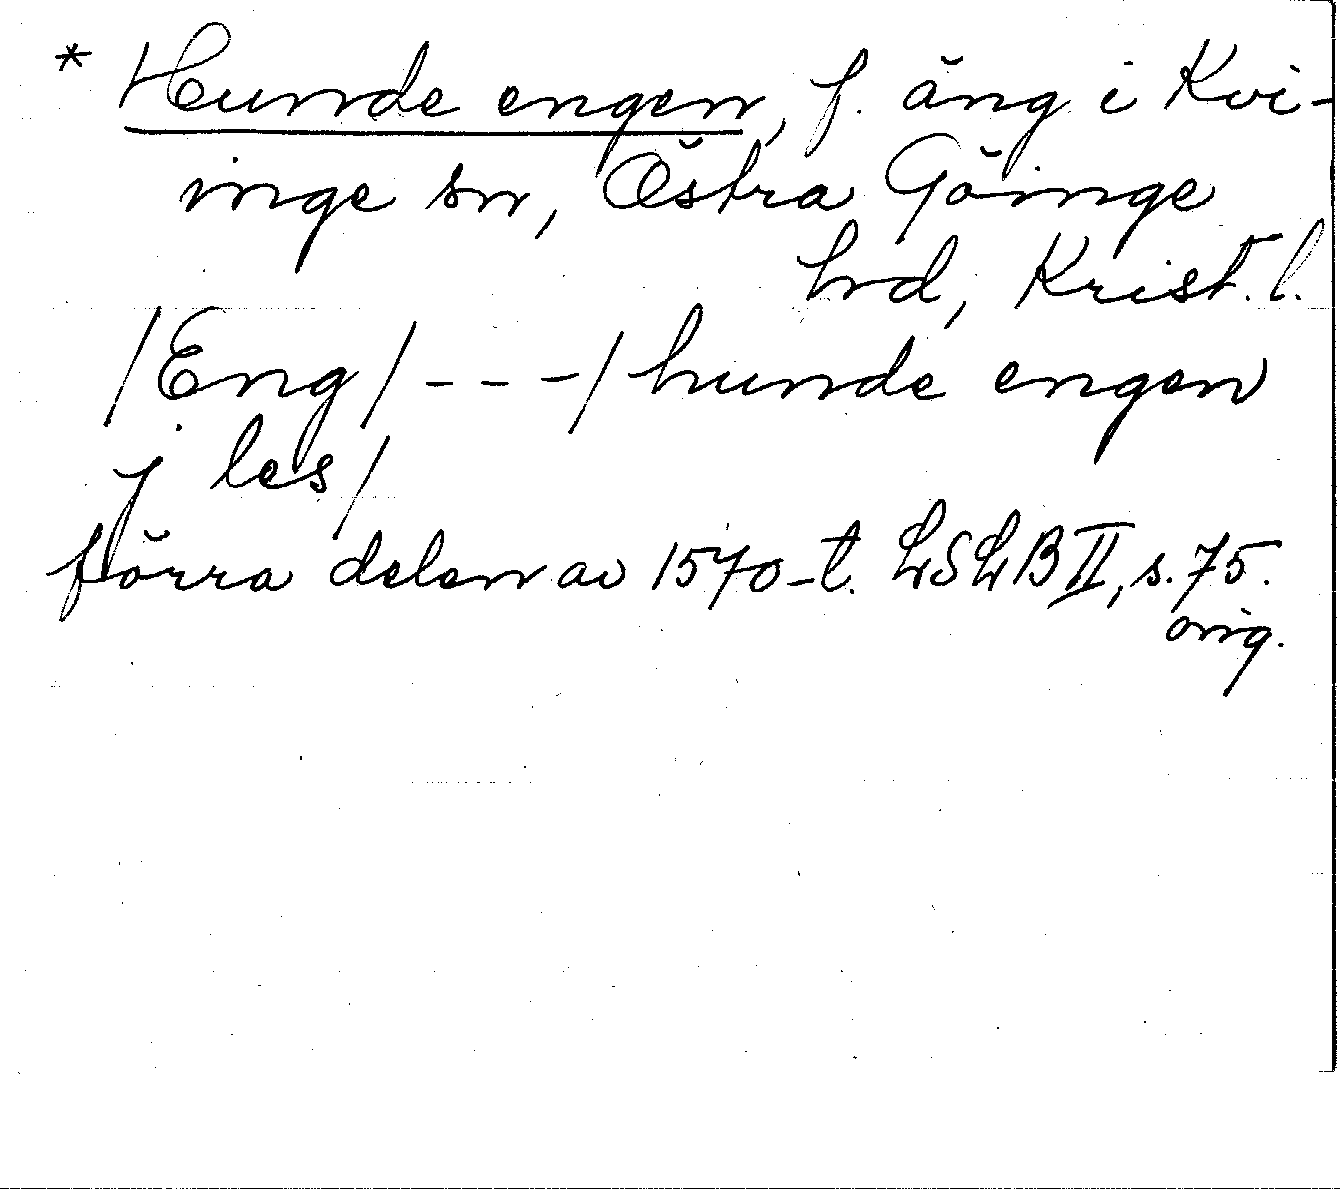 * Hunde engen, f. äng i Kvi-
inge sn, Östra Göinge
hrd, Krist. l.
/Eng/ - - - / hunde engen
j les/
förra delen av 1570-t. LSLB II, s. 75.
orig.